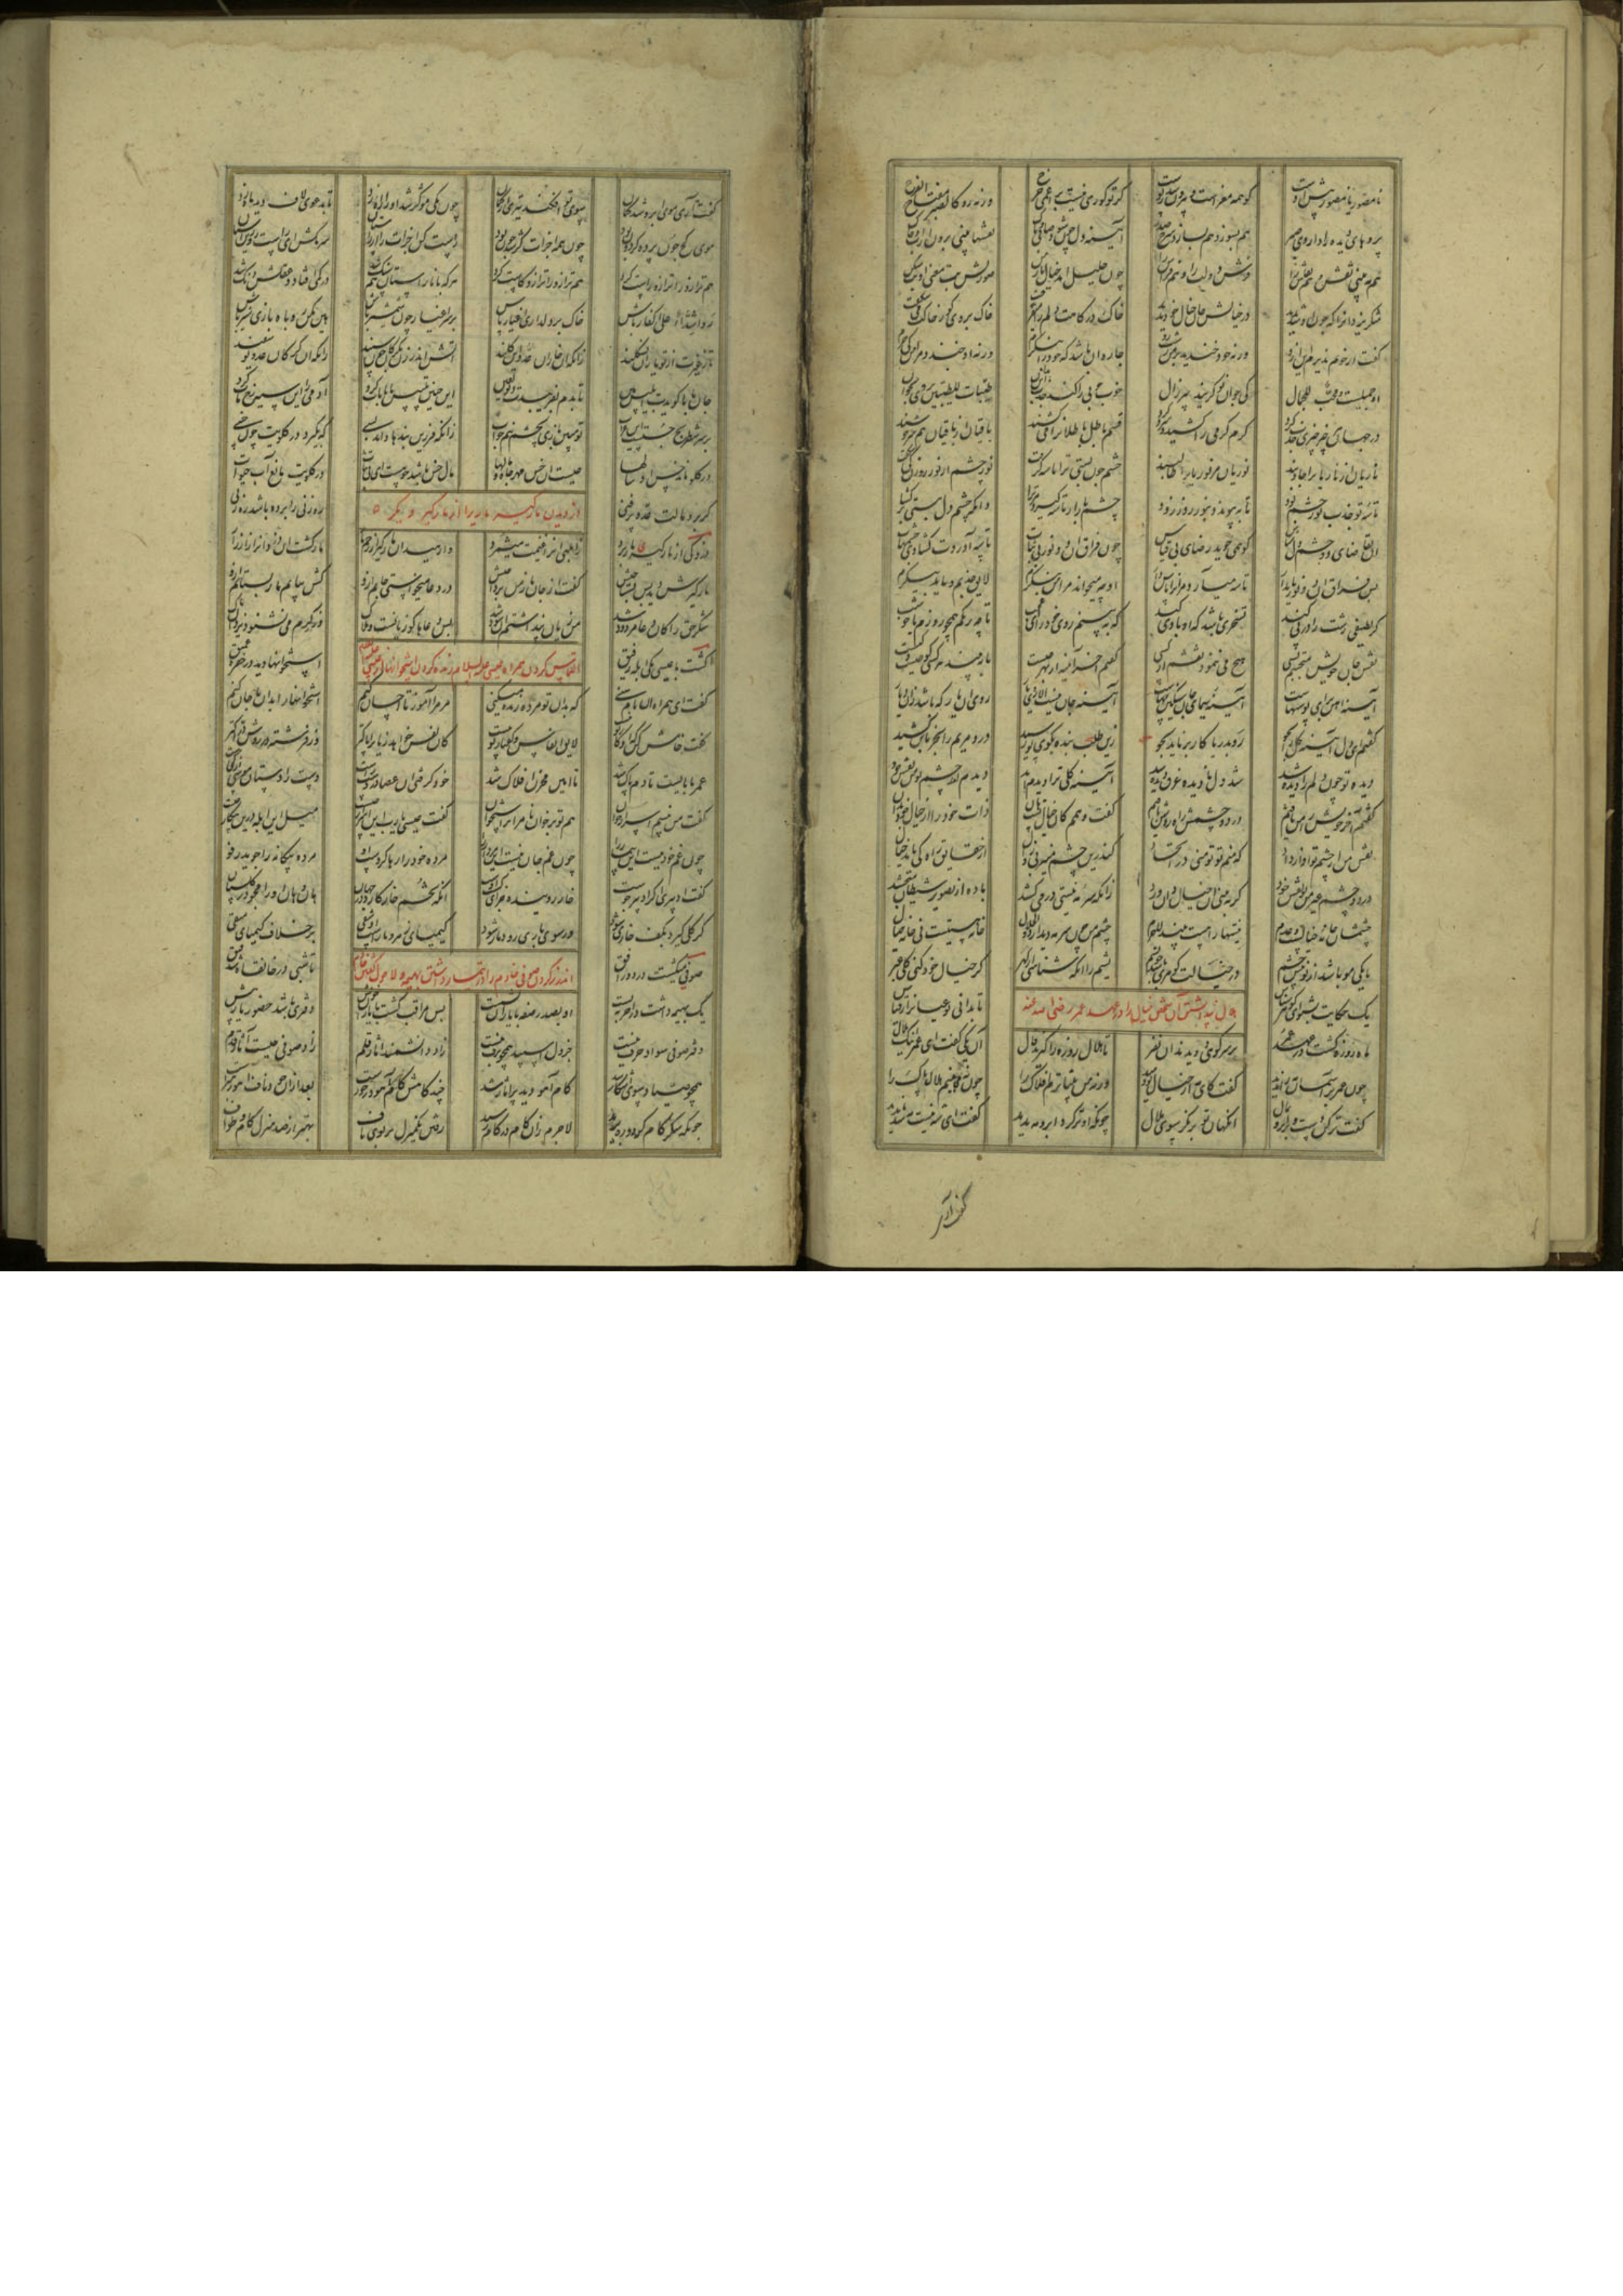 یا مصور یا مصور پیش اوست کو همه مغزست و بیرون شد ز پوست گر تو کوری نیست بر اعمی حرج ورنه رو کالصبر مفتاح الفرج
پردهای دیده را داروی صبر هم بسوزد هم بسازد شرح صدر آینه دل چون شود صافی و پاک نقشها بینی برون از آب و خاک
هم ببینی نقش و هم نقاش را فرش دولت را و هم فراش را چون خلیل آمد خیال یار من صورتش بت معنی او بت شکن
شکر یزدانرا که چون او شد پدید در خیالش جان خیال خود بدید خاک درگاهت دلم را میفریفت خاک بر وی کو ز خاکت میشکیفت
گفتم ار خوبم پذیرم این ازو ورنه خود خندید بر من زشت رو چاره آن باشد که خود را بنگرم ورنه او خندد مرا من کی خرم
او جمیلست و محب للجمال کی جوان نو گزیند پیر زال خوب خوبی را کند جذب این بدان طیبات للطیبین بر وی بخوان
در جهان هر چیز چیزی جذب کرد گرم گرمی را کشید و سرد سرد قسم باطل باطلانرا میکشند باقیان از باقیان هم سرخوشند
ناریان مر ناریانرا جاذبند نوریان مر نوریانرا طالبند چشم چون بستی ترا تاسه گرفت نور چشم از نور روزن کی شکفت
تاسه تو جذب نور چشم بود تا بپیوندد بنور روز زود چشم باز ار تاسه گیرد مر ترا دانکه چشم دل ببستی بر گشا
آن تقاضای دو چشم دل شناس کو همی جوید ضیای بی قیاس چون فراق آن دو نور بی ثبات تاسه آوردت گشادی چشمهات
پس فراق آن دو نور پایدار تاسه میآرد مر آنرا پاس دار او چو میخواند مرا من بنگرم لایق جذبم و یا بد پیکرم
گر لطیفی زشت را در پی کند تسخری باشد که او با وی کند که ببینم روی خود را ای عجب تا چه رنگم همچو روزم یا چو شب
نقش جان خویش میجستم بسی هیچ می ننمود نقشم از کسی گفتم آخر آینه از بهر چیست
آینه آهن برای پوستهاست آینه سیمای جان سنگین بهاست آینه جان نیست الا روی یار روی آن یاری که باشد زان دیار
گفتم ای دل آینه کل بجو رو بدریا کار بر ناید بجو زین طلب بنده بکوی تو رسید درد مریم را بخرمابن کشید
دیده تو چون دلم را دیده شد شد دل نادیده غرق دیده شد آینه کلی ترا دیدم ابد دیدم اندر چشم تو من نقش خود
گفتم آخر خویش را من یافتم در دو چشمش راه روشن یافتم گفت وهمم کان خیال تست هان ذات خود را از خیال خود بدان
نقش من از چشم تو آواز داد که منم تو تو منی در اتحاد کاندرین چشم منیر بی زوال از حقایق راه کی یابد خیال
در دو چشم غیر من تو نقش خود گر ببینی آن خیالی دان و رد زانکه سرمه نیستی در میکشد باده از تصویر شیطان میچشد
چشمشان خانه خیالست و عدم نیستها را هست بیند لاجرم چشم من چون سرمه دید از ذوالجلال خانه هستیست نی خانه خیال
تا یکی مو باشد از تو پیش چشم در خیالت گوهری باشد چو یشم یشم را آنگه شناسی از گهر کز خیال خود کنی کلی عبر
یک حکایت بشنو ای گوهر شناس تا بدانی تو عیانرا از قیاس
هلال پنداشتن آن شخص خیال را در عهد عمر رضی الله عنه
ماه روزه گشت در عهد عمر بر سر کوهی دویدند آن نفر تا هلال روزه را گیرند فال آن یکی گفت ای عمر اینک هلال
چون عمر بر آسمان مه را ندید گفت کاین مه از خیال تو دمید ورنه من بیناترم افلاک را چون نمی بینم هلال پاک را
گفت تر کن دست و بر ابرو بمال آنگهان تو بر نگر سوی هلال چونکه او تر کرد ابرو مه ندید گفت ای شه نیست مه شد ناپدید
گفت آری
گفت آری موی ابرو شد کمان سوی تو افکند تیری از گمان چون یکی مو کژ شد او را راه زد تا بدعوی لاف دید ماه زد
موی کژ چون پرده گردون بود چون همه اجزات کژ شد چون بود راست کن اجزات را از راستان سر مکش ای راست رو زان آستان
هم ترازو را ترازو راست کرد هم ترازو را ترازو کاست کرد هر که با ناراستان هم سنگ شد در کمی افتاد و عقلش دنگ شد
رو اشداء علی الکفار باش خاک بر دلداری اغیار پاش بر سر اغیار چون شمشیر باش هین مکن روباه بازی شیر باش
تا ز غیرت از تو یاران نگسلند زانکه آن خاران عدو این گلند آتش اندر زن بگرگان چون سپند زانکه آن گرگان عدو یوسفند
جان بابا گویدت ابلیس هین تا بدم بفریبدت دیو لعین این چنین تلبیس با بابات کرد آدمی را این سیه رخ مات کرد
بر سر شطرنج چستست این غراب تو مبین بازی بچشم نیم خواب زانکه فرزین بندها داند بسی که بگیرد در گلویت چون خسی
در گلو ماند خس او سالها چیست آن خس مهر جاه و مالها مال خس باشد چو هست ای بی ثبات در گلویت مانع آب حیات
گر برد مالت عدوی پر فنی ره زنی را برده باشد ره زنی
دزدیدن مارگیر ماری را از مارگیر دیگر
دزدکی از مارگیری مار برد ز ابلهی آنرا غنیمت میشمرد وا رهید آن مارگیر از زخم مار مار کشت آن دزد او را زار زار
مارگیرش دید پس بشناختش گفت از جان مار من پرداختش در دعا میخواستی جانم ازو کش بیابم مار بستانم ازو
شکر حق را کان دعا مردود شد من زیان پنداشتم آن سود شد بس دعاها کان زیانست و هلاک وز کرم می نشنود یزدان پاک
التماس کردن همراه عیسی علیه السلام زنده کردن استخوانها از عیسی
گشت با عیسی یکی ابله رفیق استخوانها دید در حفره عمیق
گفت ای همراه آن نام سنی که بدان تو مرده زنده میکنی مر مرا آموز تا احسان کنم استخوانها را بدان با جان کنم
گفت خامش کن که آن کار تو نیست لایق انفاس و گفتار تو نیست کان نفس خواهد ز باران پاکتر وز فرشته در روش دراکتر
عمرها بایست تا دم پاک شد تا امین مخزن افلاک شد خود گرفتی این عصا در دست راست دست را دستان موسی از کجاست
گفت اگر من نیستم اسرار خوان هم تو بر خوان نام را بر استخوان گفت عیسی یارب این اسرار چیست میل این ابله درین بیگار چیست
چون غم خود نیست این بیمار را چون غم جان نیست این مردار را مرده خود را رها کردست او مرده بیگانه را جوید رفو
گفت حق ادبیر گر ادبار جوست خار روییده جزای کشت اوست آنکه تخم خار کارد در جهان هان و هان او را مجو در گلستان
گر گلی گیرد بکف خاری شود ور سوی یاری رود ماری شود کیمیای زهر و مارست آن شقی بر خلاف کیمیای متقی
اندرز کردن صوفی خادم را در تیمار داشت بهیمه و لا حول گفتن خادم
صوفیی میگشت در دور افق تا شبی در خانقاهی شد قنق
یک بهیمه داشت در آخر ببست او بصدر صفه با یاران نشست پس مراقب گشت با یاران خویش دفتری باشد حضور یار پیش
دفتر صوفی سواد و حرف نیست جز دل اسپید همچون برف نیست زاد دانشمند آثار قلم زاد صوفی چیست آثار قدم
همچو صیادی سوی اشکار شد گام آهو دید بر آثار شد چند گامش گام آهو در خورست بعد از آن خود ناف آهو رهبرست
چونکه شکر گام کرد و ره برید لاجرم زان گام در کامی رسید رفتن یک منزلی بر بوی ناف بهتر از صد منزل گام و طواف